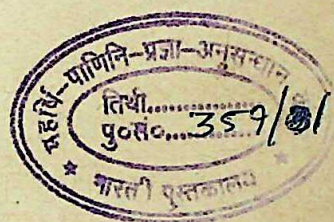 महर्षि-पाणिनि-प्रज्ञा-अनुसन्धान
तिथी..............
पु०सं०.... 359/
भारती पुस्तकालय